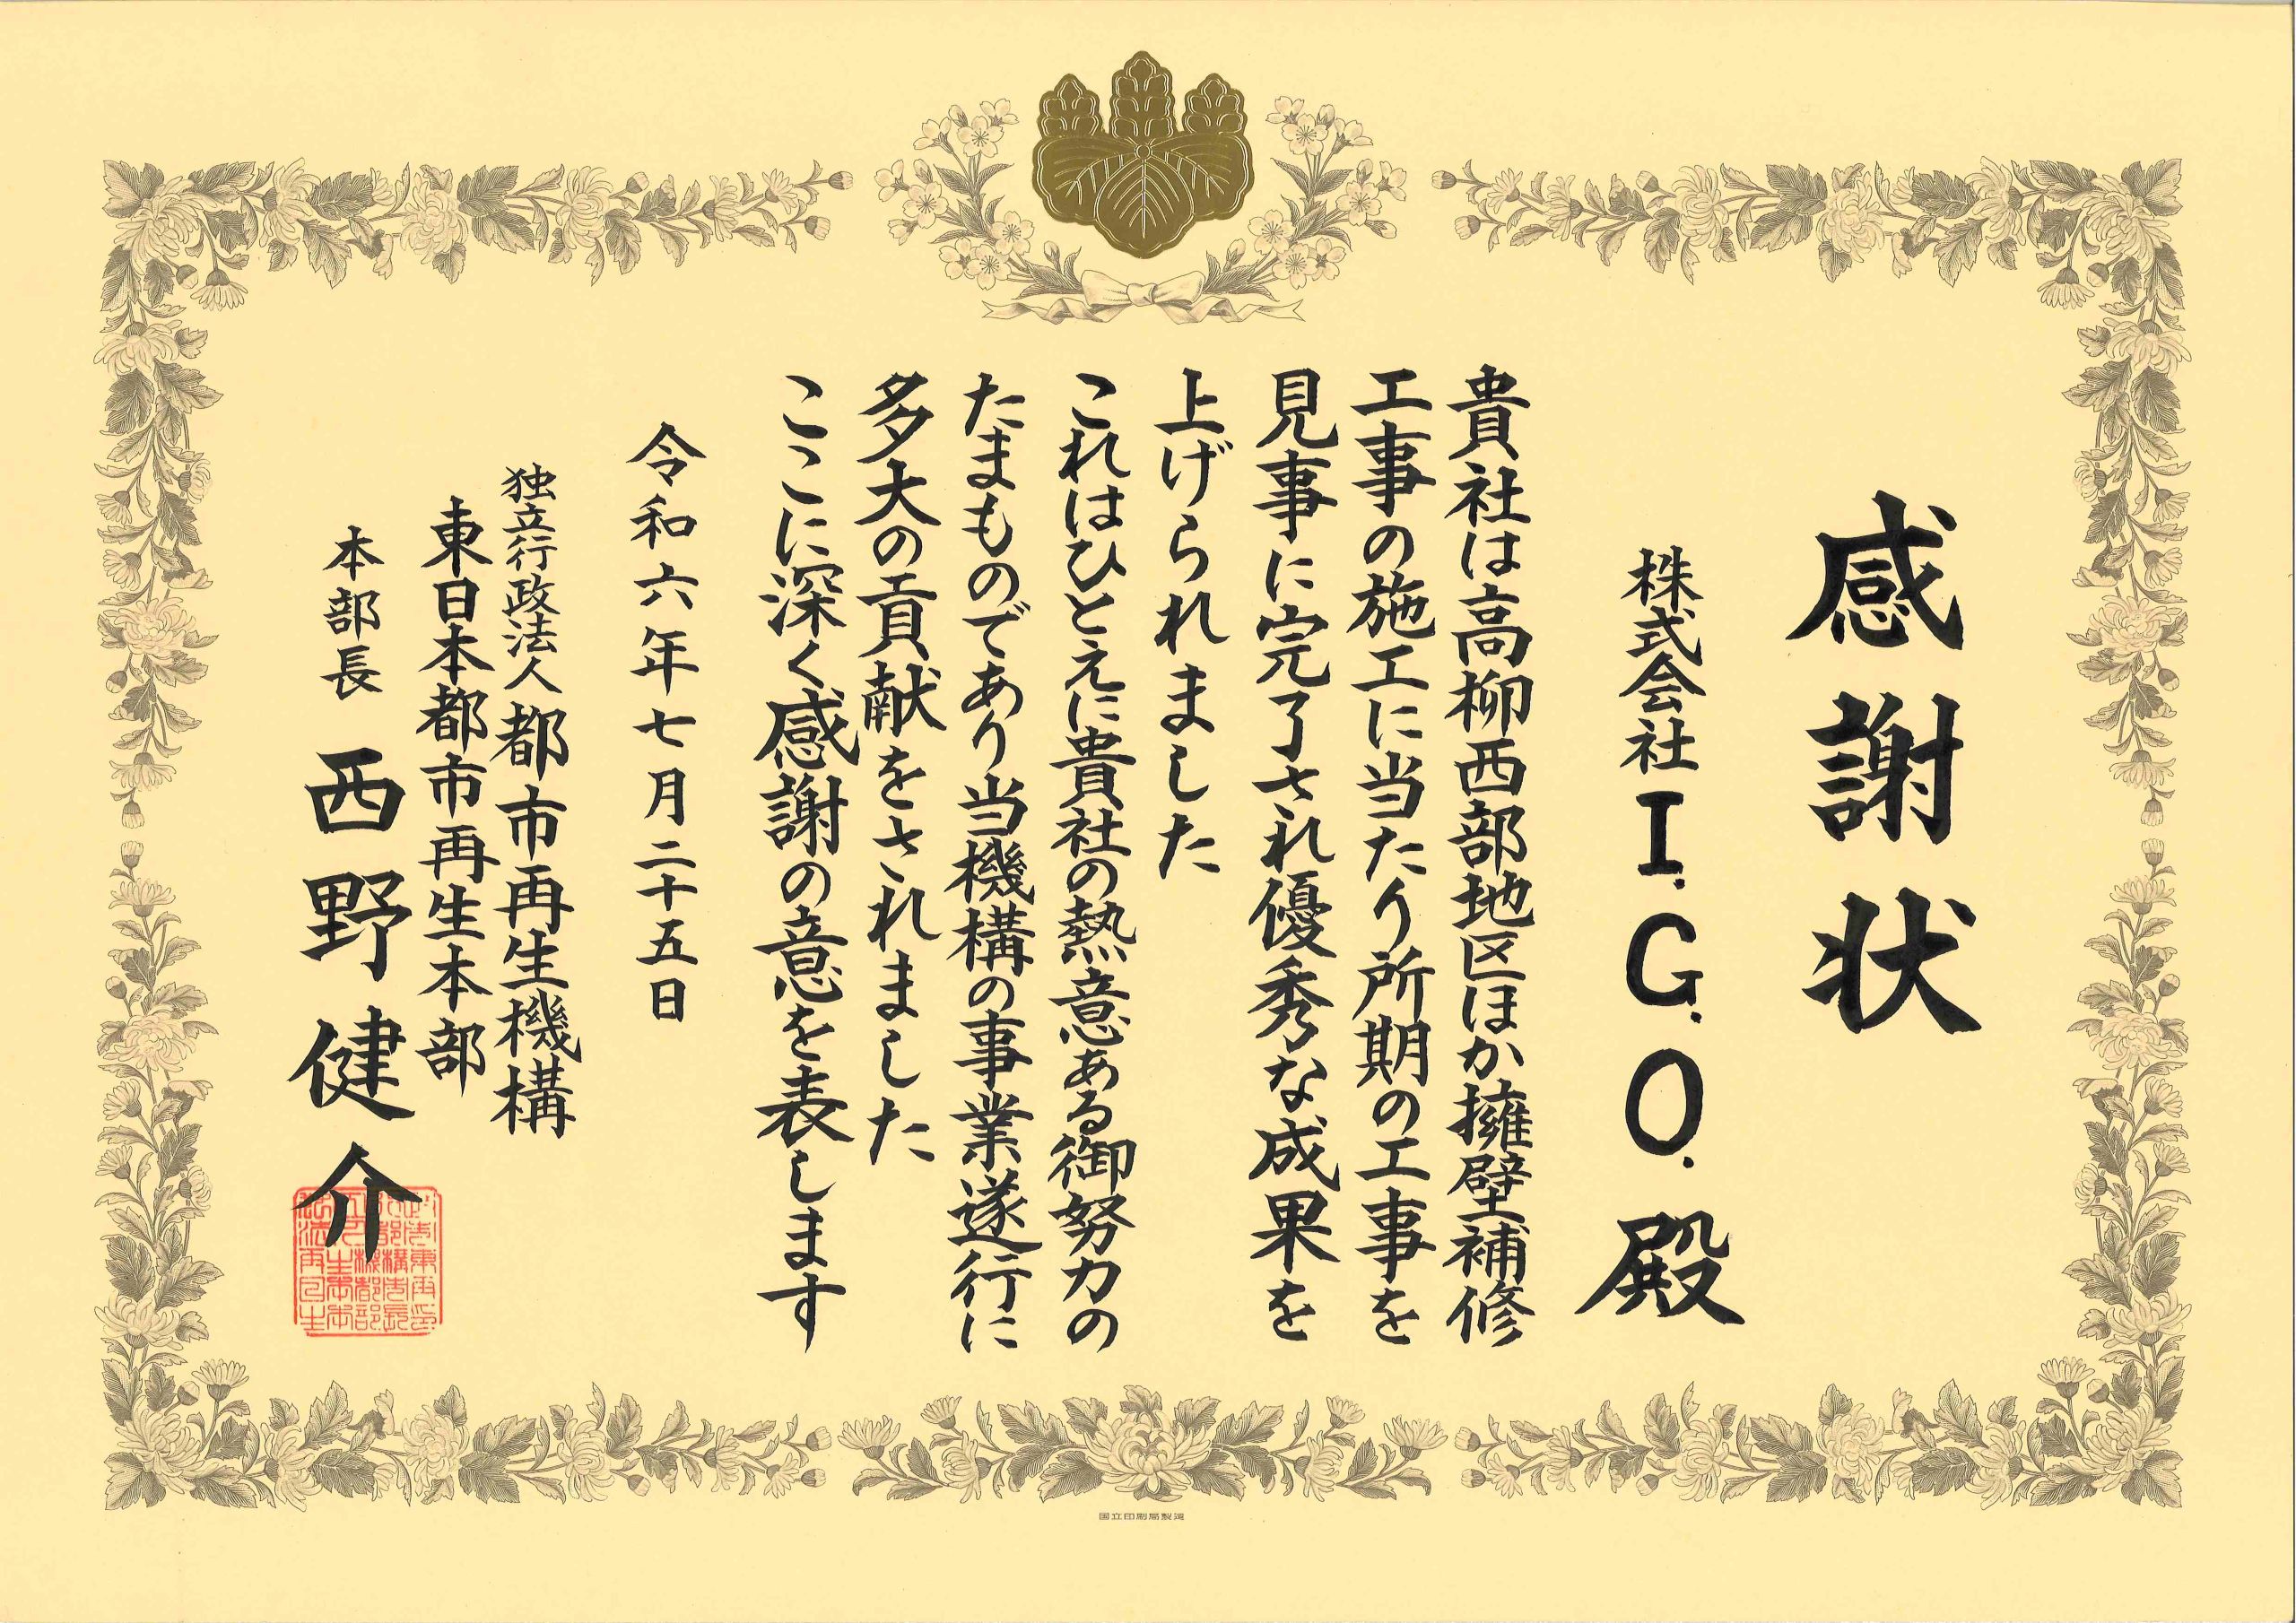 感謝状
株式会社I.G.O.殿
貴社は高柳西部地区ほか擁壁補修
工事の施工に当たり所期の工事を
見事に完了され優秀な成果を
上げられました
これはひとえに貴社の熱意ある御努力の
たまものであり当機構の事業遂行に
多大の貢献をされました
ここに深く感謝の意を表します
令和六年七月二十五日
独立行政法人都市再生機構
東日本都市再生本部
本部長 西野健介
国立印刷局製造